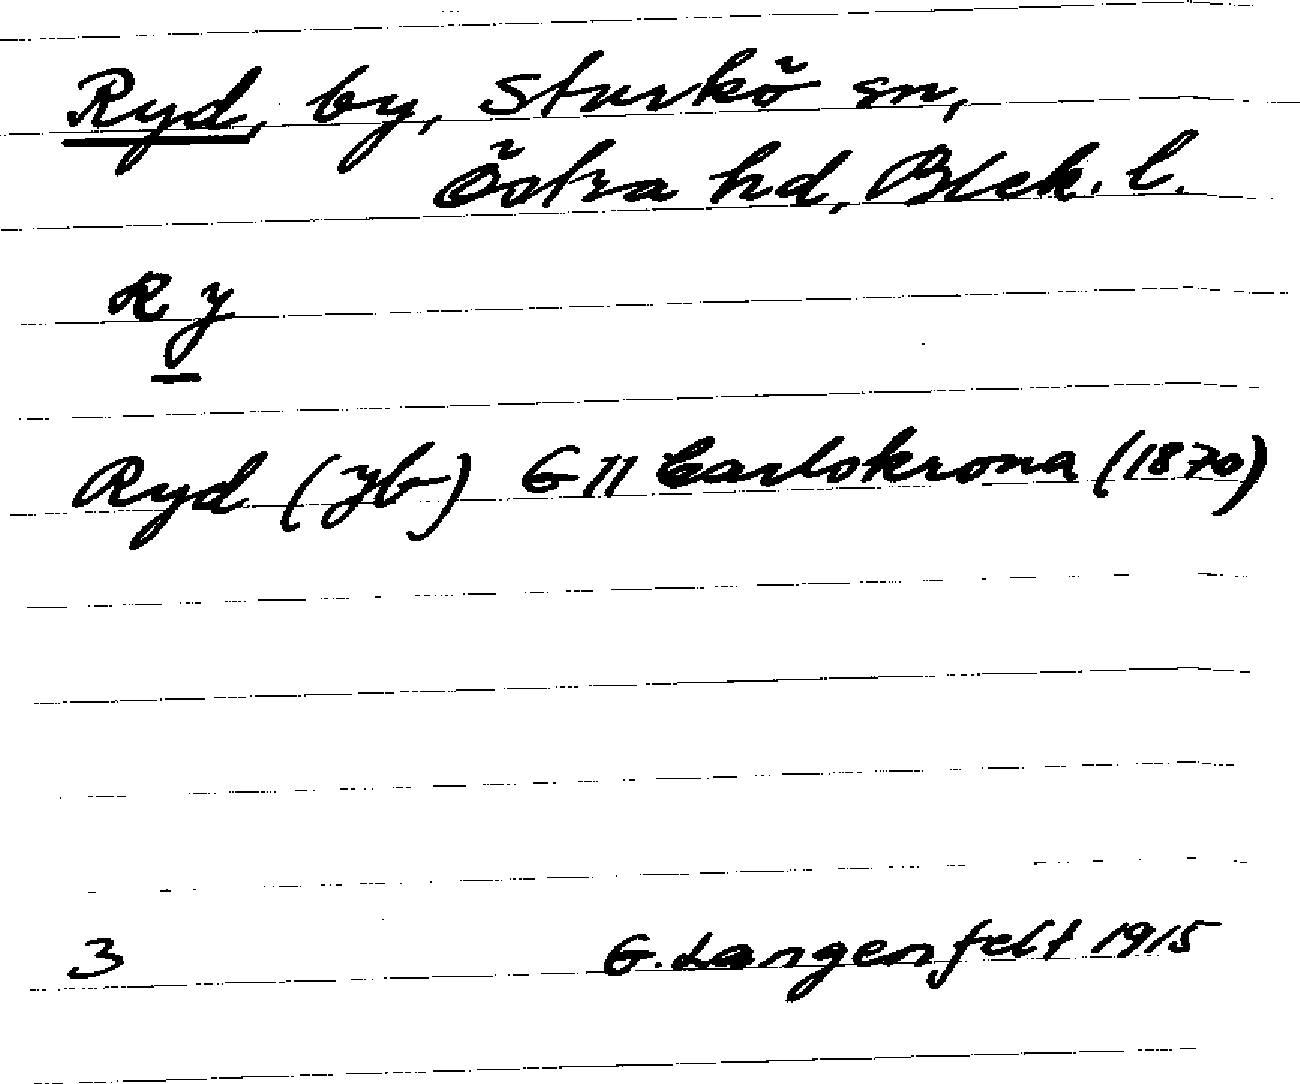 Ryd, by, Sturkö sn,
Östra hd, Blek. l.
Ry
Ryd (Jb) G 11 Carlskrona (1870)
3 G. Langenfelt 1915